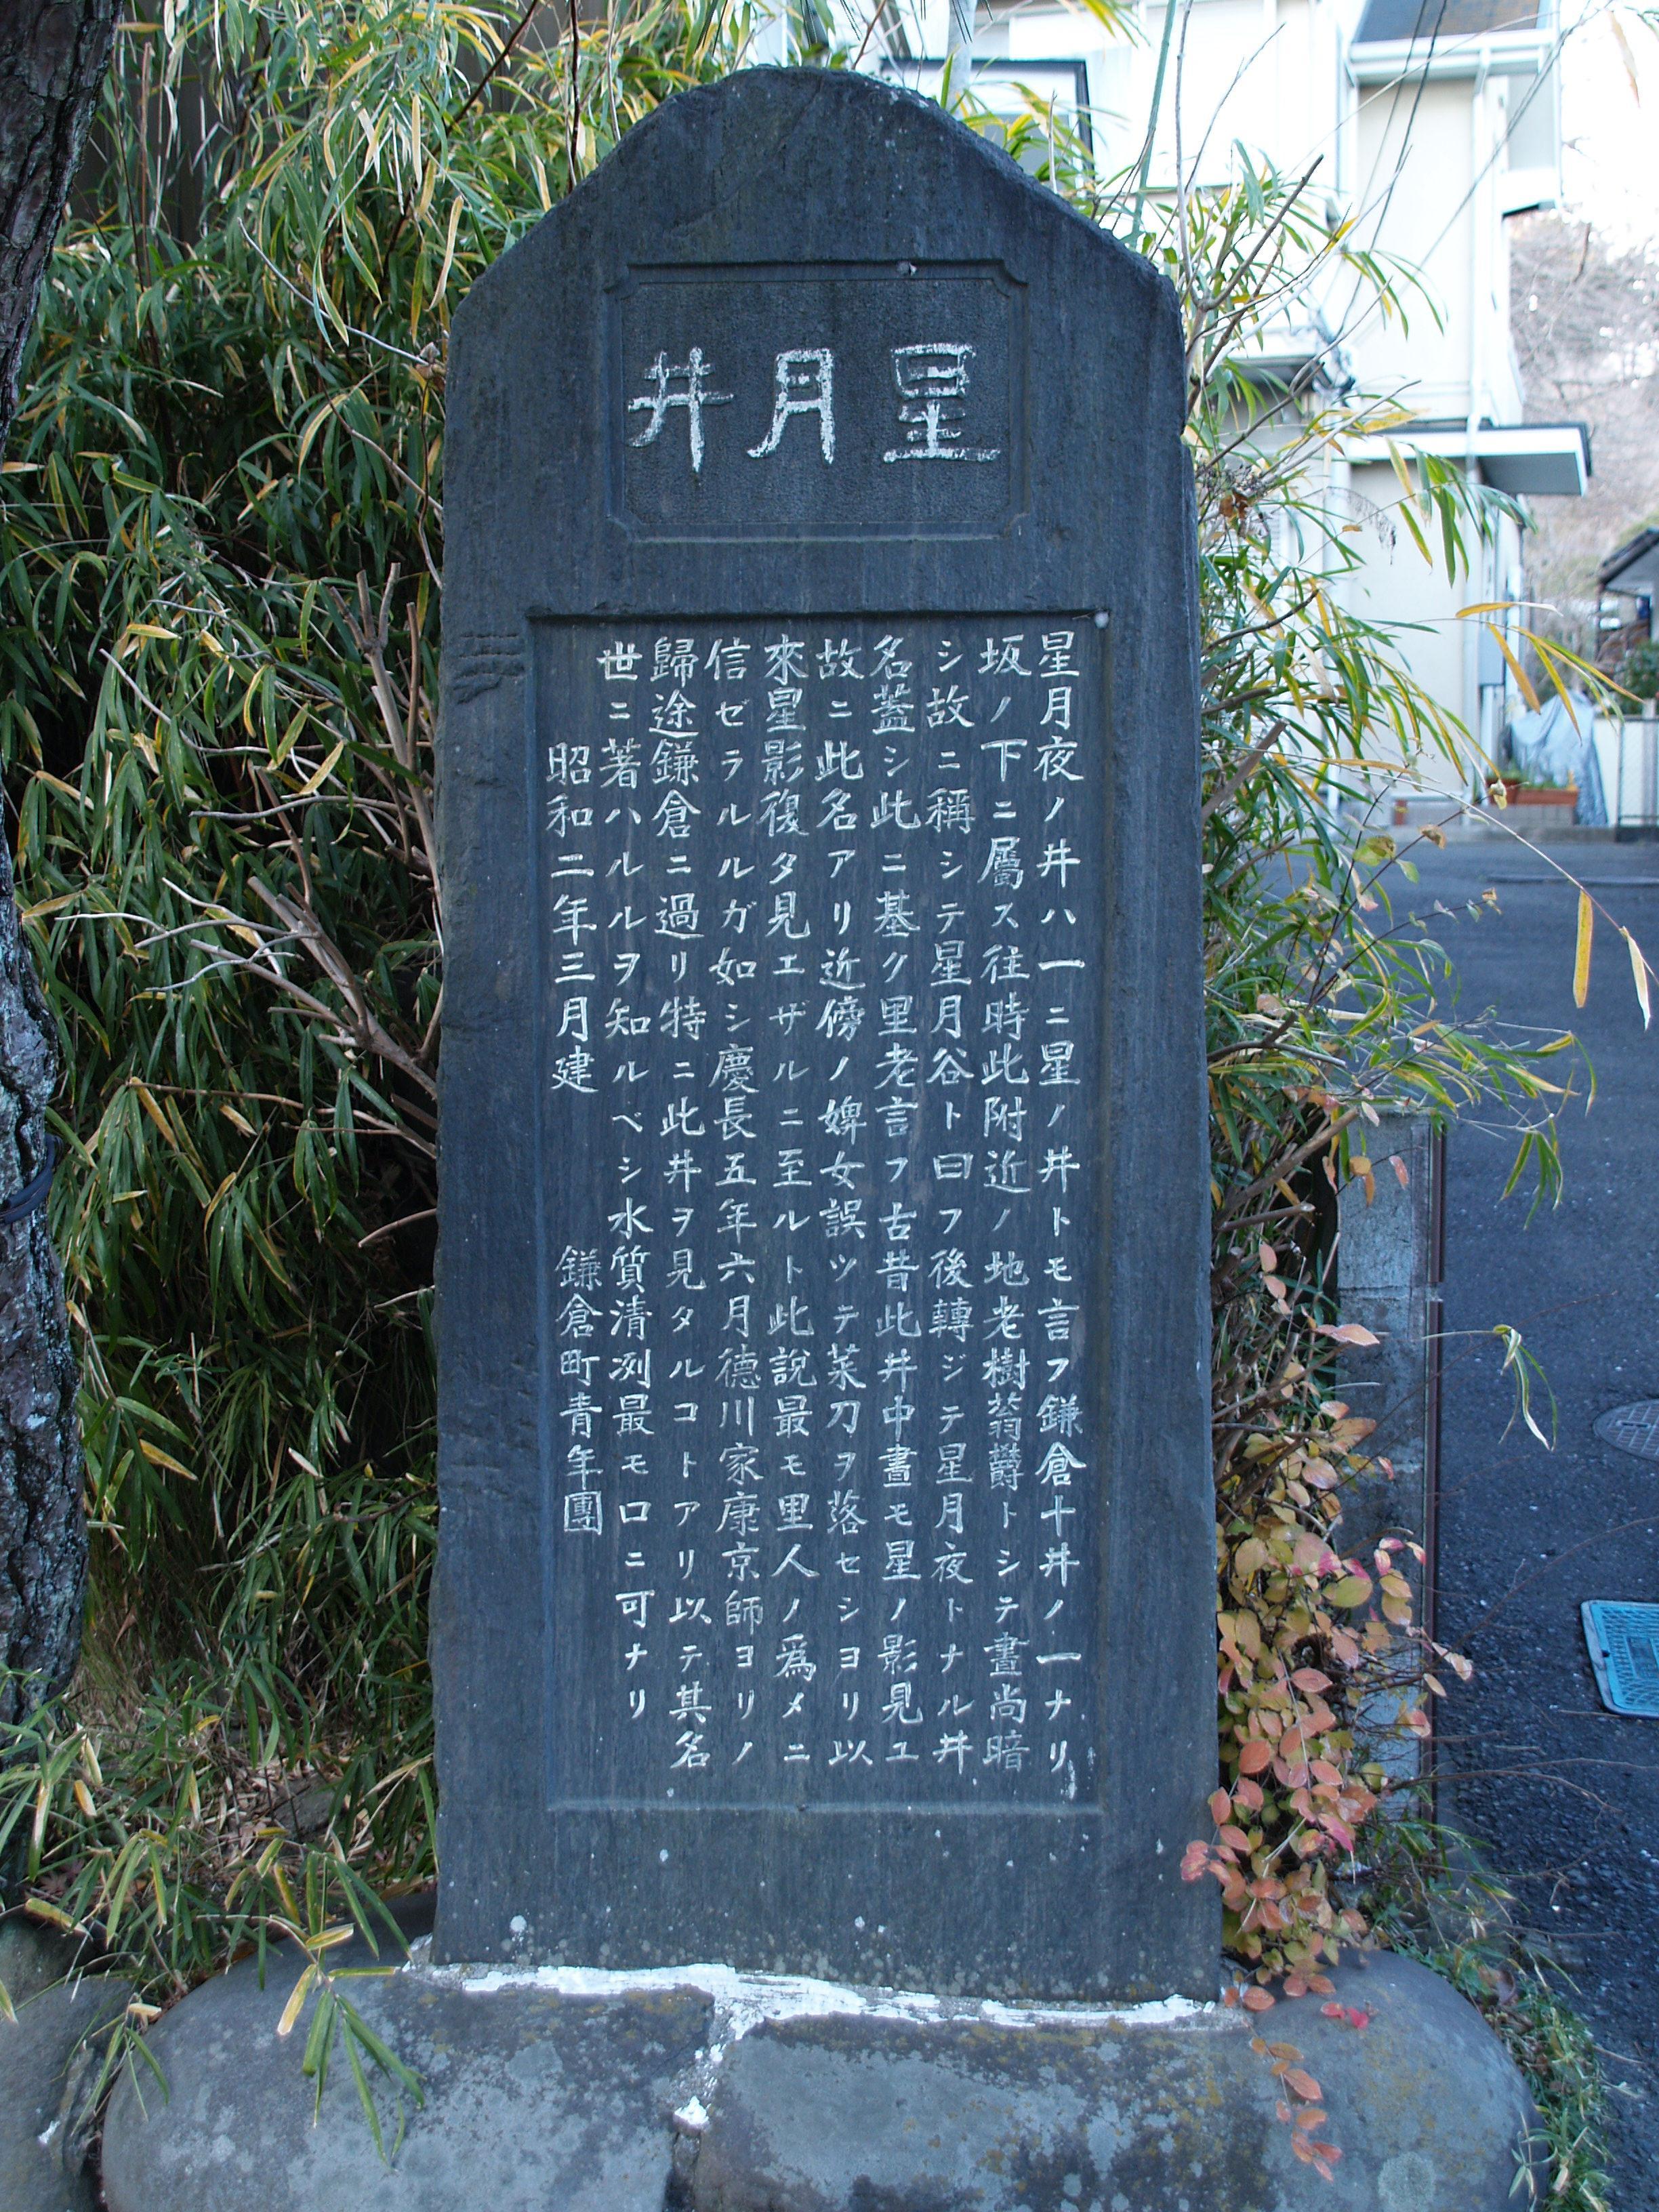 星月井
星月夜ノ井ハ一ニ星ノ井トモ言フ鎌倉十井ノ一ナリ
坂ノ下ニ屬ス往時此附近ノ地老樹蓊欝トシテ晝尚暗
シ故ニ稱シテ星月谷ト曰フ後轉ジテ星月夜トナル井
名蓋シ此ニ基ク里老言フ古昔此井中晝モ星ノ影見ユ
故ニ此名アリ近傍ノ婢女誤ツテ菜刀ヲ落セシヨリ以
來星影復タ見エザルニ至ルト此說最モ里人ノ爲メニ
信ゼラルルガ如シ慶長五年六月德川家康京師ヨリノ
歸途鎌倉ニ過リ特ニ此井ヲ見タルコトアリ以テ其名
世ニ著ハルルヲ知ルベシ水質清冽最モ口ニ可ナリ
昭和二年三月建 鎌倉町青年團